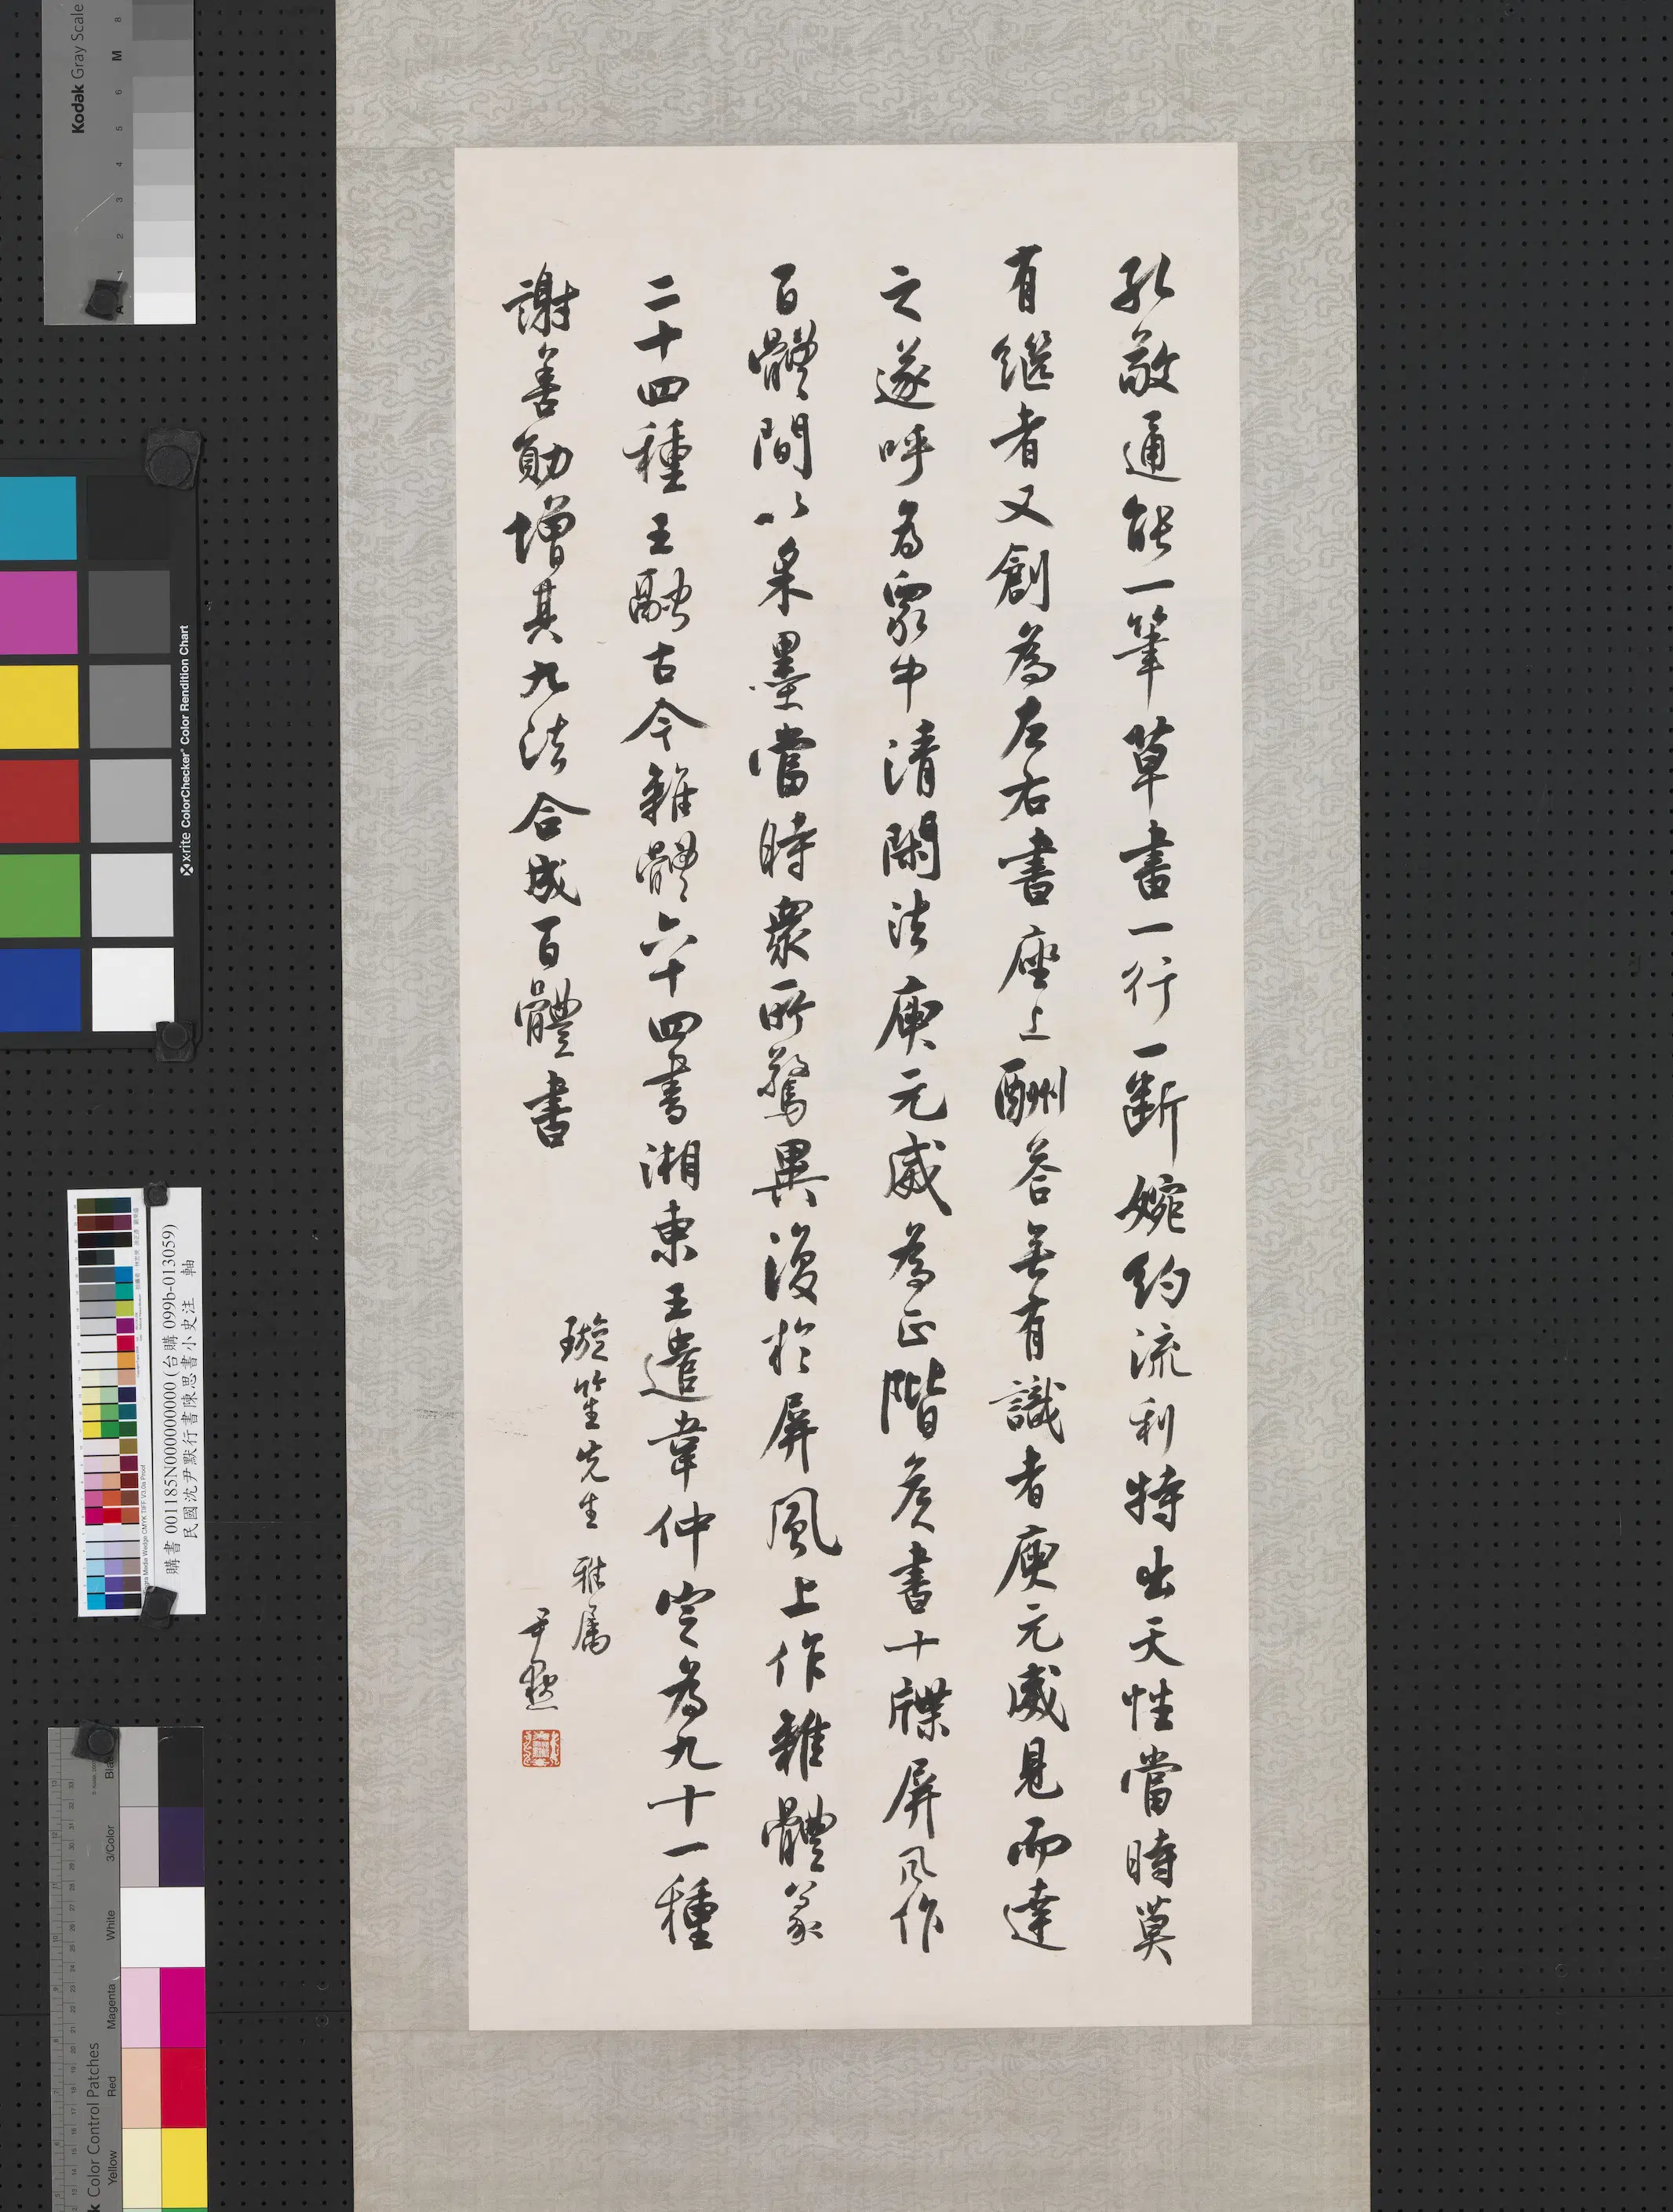 孔敬通能一筆草書一行一斷婉約流利特出天性當時莫
有繼者又創為左右書座上酬答無有識者庾元威見而達
之遂呼為眾中清閑法庾元威為正階侯書十牒屏風作
百體間以采墨當時眾所驚異復於屏風上作雜體篆
二十四種王融古今雜體六十四書湘東王遣韋仲定為九十一種
謝善勛增其九法合成百體書
璇笙先生 雅属
尹默
Kodak Gray Scale
A 1 2 3 4 5 6 M 8
x-rite ColorChecker Color Rendition Chart
購書 001185N000000000 (台購 099b-013059)
民國沈尹默行書陳思書小史注 軸
Color Control Patches
3/Color
White
Magenta
Red
Yellow